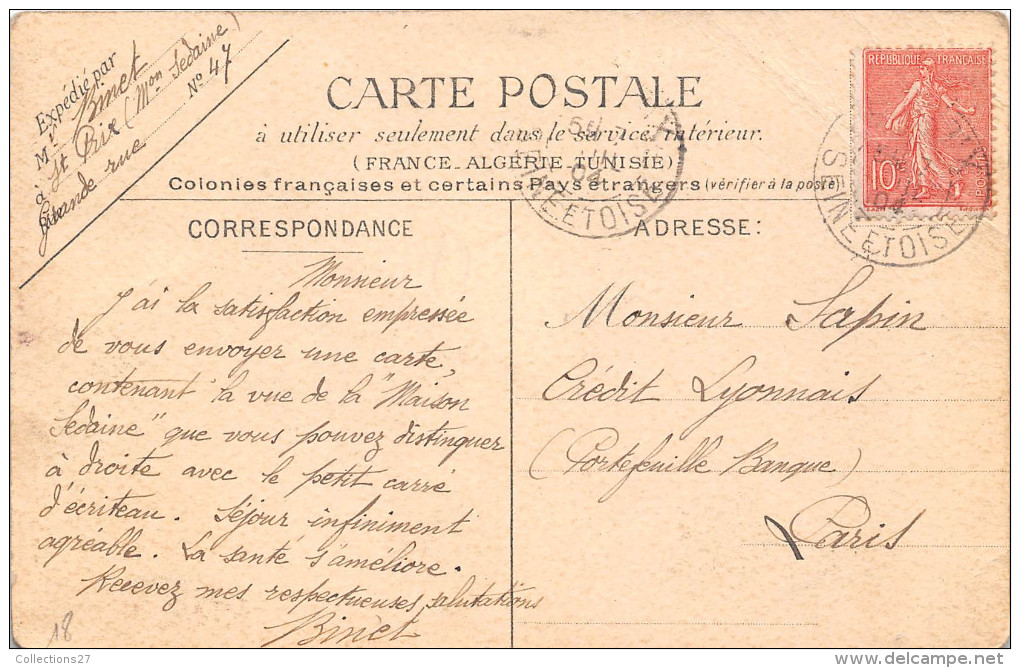 Expédié par
M r Binet
à St Prix (Mon Sedaine)
Grande rue No 47
CARTE POSTALE
à utiliser seulement dans le service intérieur.
(FRANCE_ALGÉRIE_TUNISIE)
Colonies françaises et certains Pays étrangers (vérifier à la poste)
RÉPUBLIQUE FRANÇAISE
10c
POSTES
SEINE ET OISE
04
SEINE ET OISE
04
CORRESPONDANCE
Monsieur
J'ai la satisfaction empressée
de vous envoyer une carte,
contenant la vue de la "Maison
Sedaine" que vous pouvez distinguer
à droite avec le petit carré
d'écriteau. Séjour infiniment
agréable. La santé s'améliore.
Recevez mes respectueuses salutations
Binet
ADRESSE:
Monsieur Sapin
Crédit Lyonnais
(Portefeuille Banque)
Paris
18
Collections27
delcampe.net